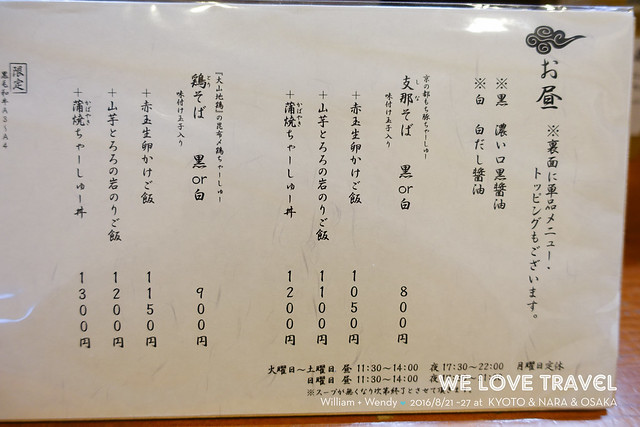 お昼 ※裏面に単品メニュー・
トッピングもございます。
※黒 濃い口黒醤油
※白 白だし醤油
京の都もち豚ちゃーしゅー
支那そば 黒or白 800円
しな
味付け玉子入り
+赤玉生卵かけご飯 1050円
+山芋とろろの岩のりご飯 1100円
+蒲焼ちゃーしゅー丼 1200円
かばやき
『大山地鶏』の昆布〆鶏ちゃーしゅー
鶏そば 黒or白 900円
とり
味付け玉子入り
+赤玉生卵かけご飯 1150円
+山芋とろろの岩のりご飯 1200円
+蒲焼ちゃーしゅー丼 1300円
かばやき
限定
黒毛和牛A3～A4
火曜日～土曜日 昼 11:30～14:00 夜 17:30～22:00 月曜日定休
日曜日 昼 11:30～14:00 夜
※スープが無くなり次第終了とさせて頂きます
WE LOVE TRAVEL
William + Wendy ~ 2016/8/21 -27 at KYOTO & NARA & OSAKA